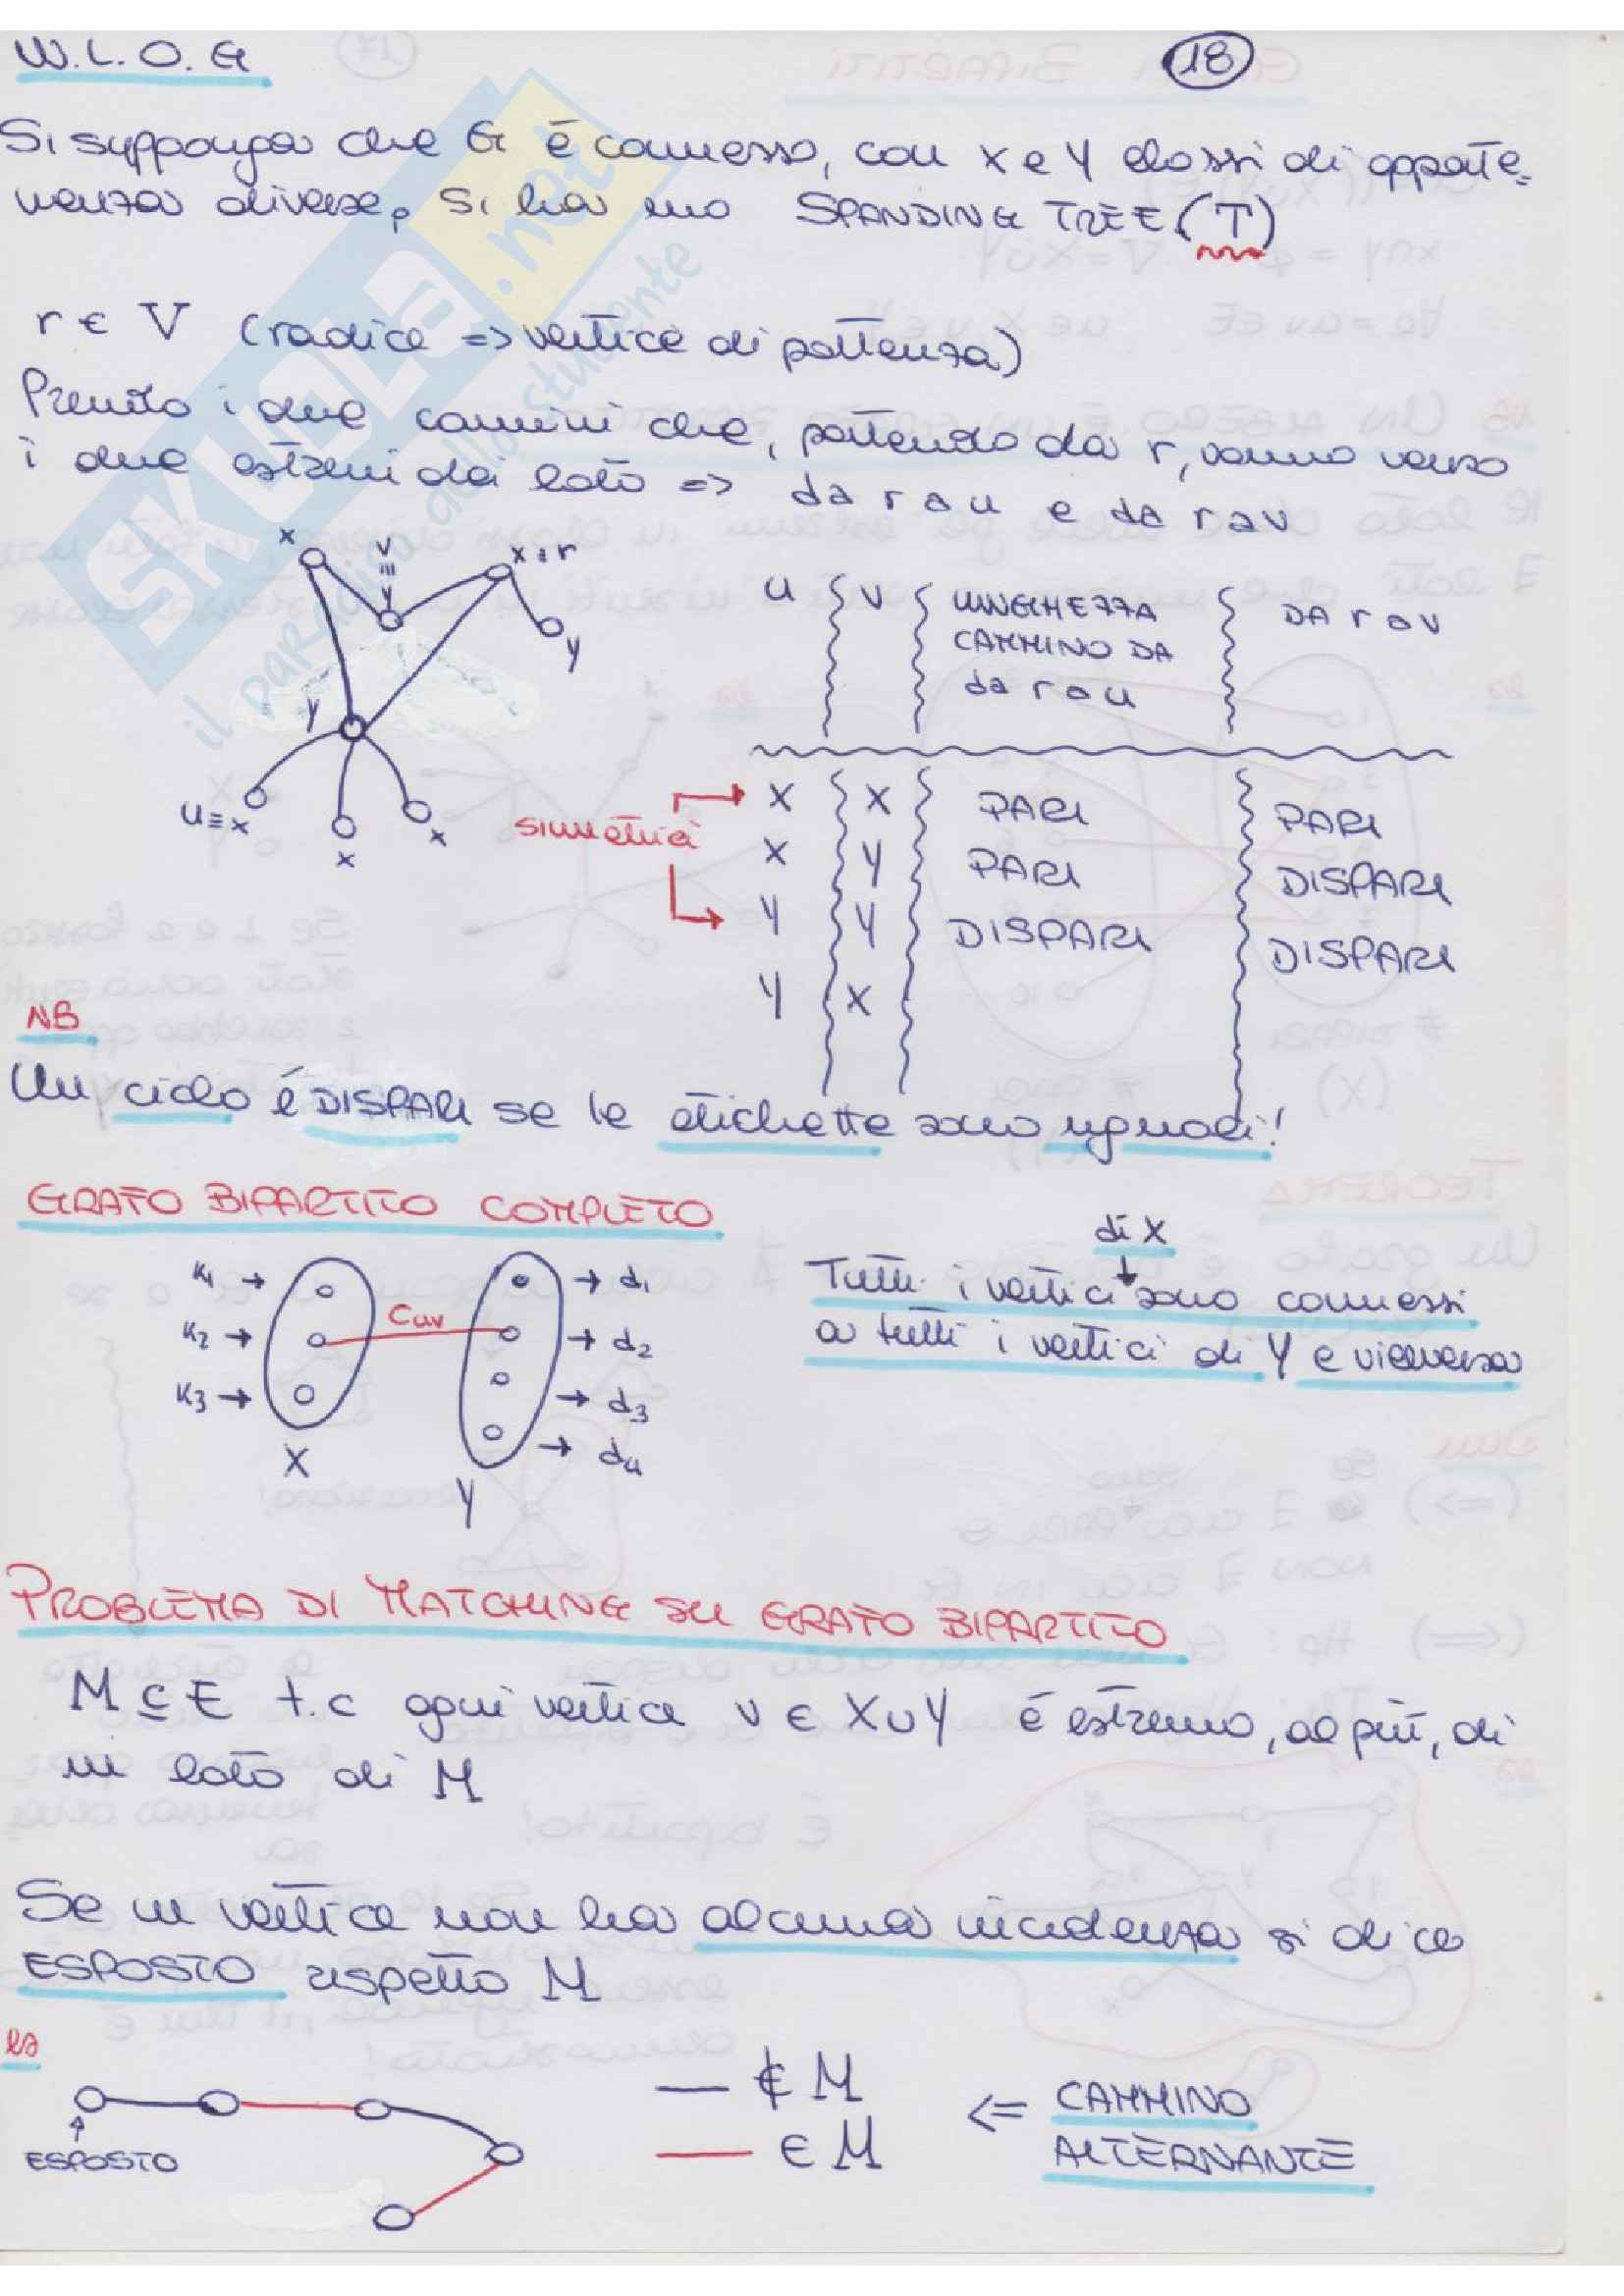 W.L.O.G
18
Si supponga che G é connesso, con X e Y classi di apparte-
nenza diverse, si ha uno SPANDING TREE (T)
r ∈ V (radice => vertice di partenza)
Prendo i due cammini che, partendo da r, vanno verso
i due estremi dei lato => da r a u e da r a v
x
v
≡
y
x ≡ r
y
y
u ≡ x
x
x
u v LUNGHEZZA CAMMINO DA da r a u DA r a v
simmetria
X X PARI PARI
X Y PARI DISPARI
Y Y DISPARI DISPARI
Y X
NB
Un ciclo é DISPARI se le etichette sono uguali!
GRAFO BIPARTITO COMPLETO
K1 →
K2 →
K3 →
X
Cuv
Y
→ d1
→ d2
→ d3
→ d4
di X
Tutti i vertici sono connessi
a tutti i vertici di Y e viceversa
PROBLEMA DI MATCHING SU GRAFO BIPARTITO
M ⊆ E t.c ogni vertice v ∈ X ∪ Y é estremo, al piú, di
un lato di M
Se un vertice non ha alcuna incidenza si dice
ESPOSTO rispetto M
es
ESPOSTO
— ∉ M
— ∈ M
<= CAMMINO
ALTERNANTE
SKUOLA.net
il paradiso dello studente